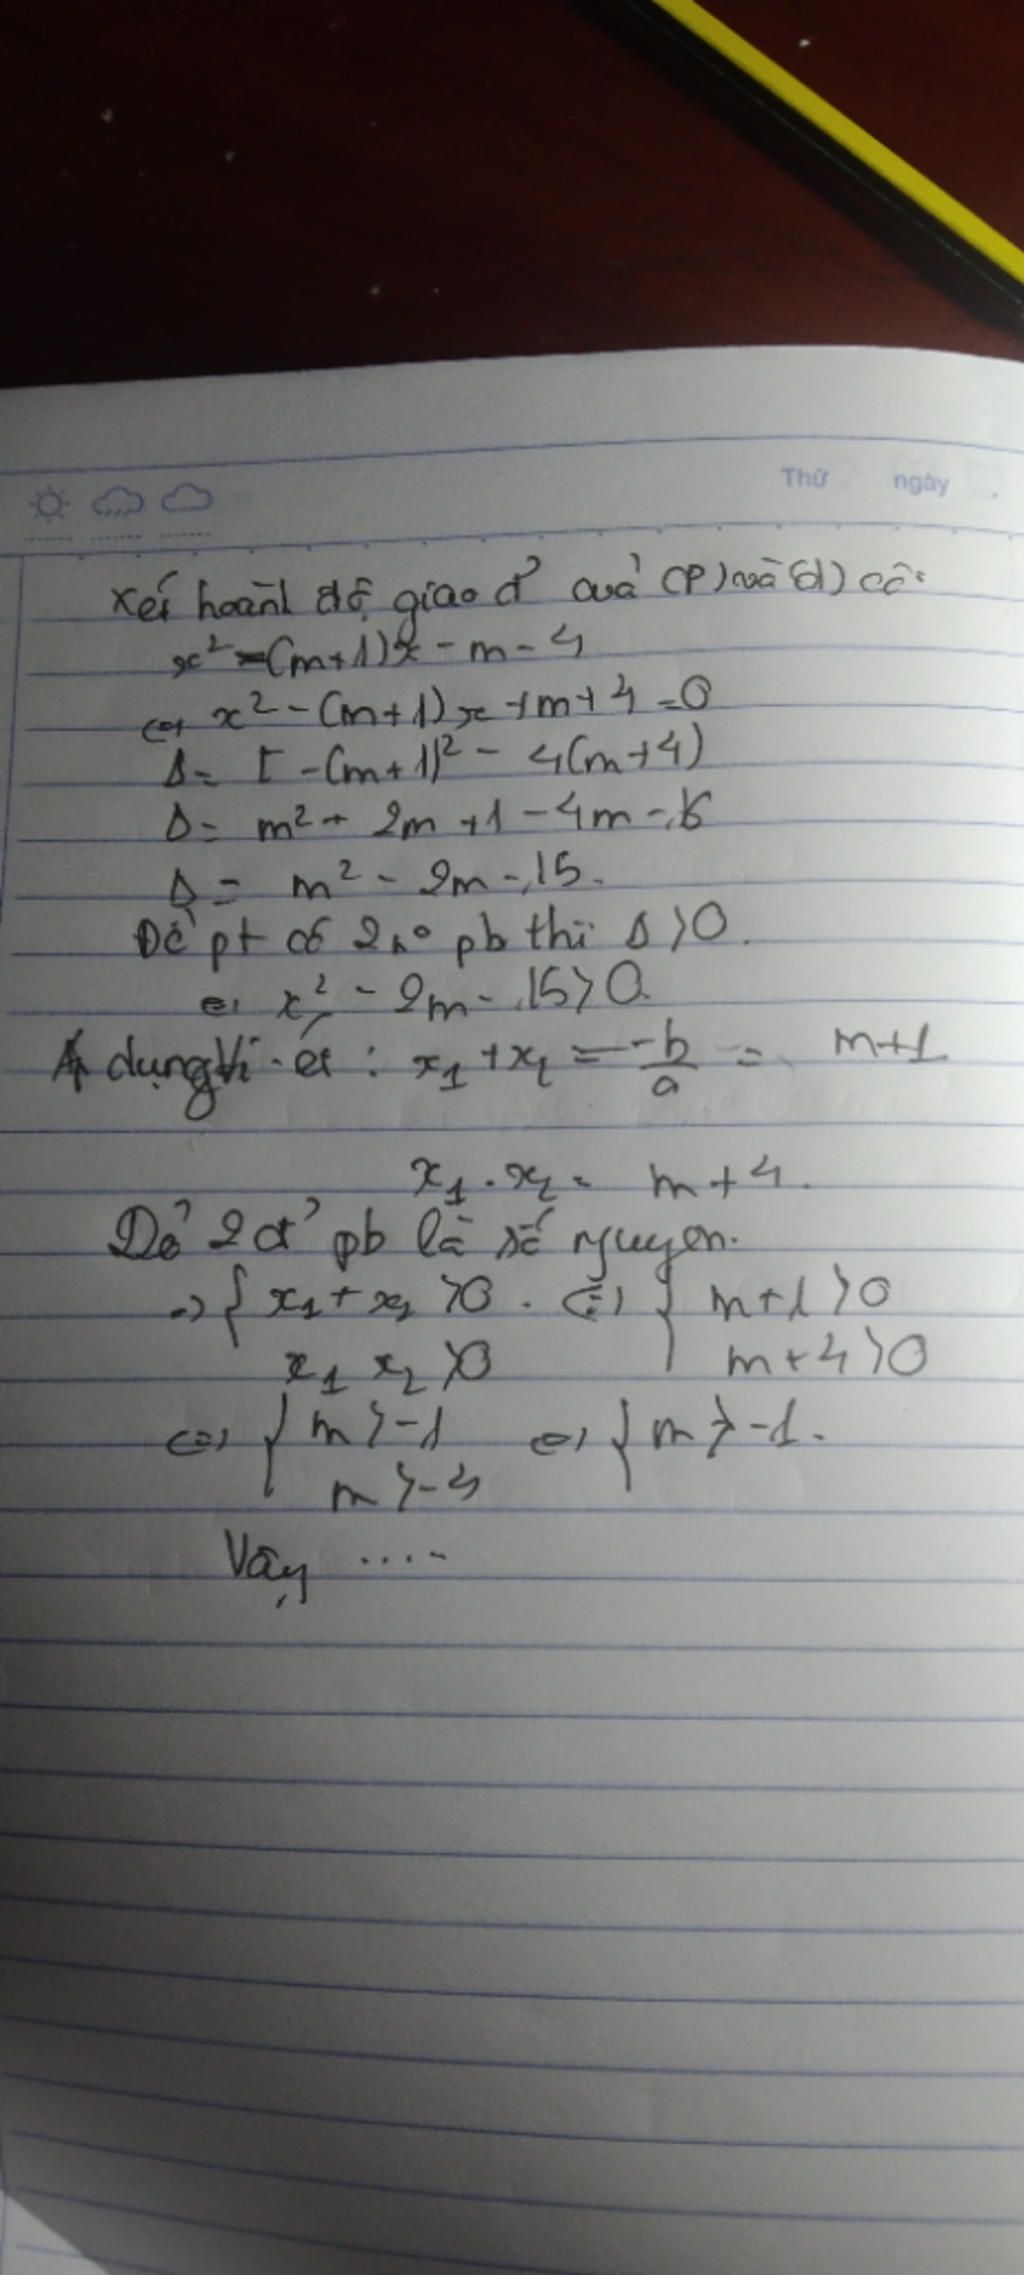 Thứ ngày
Xét hoành độ giao đ' của (P) và (d) có:
x² = (m+1)x - m - 4
<=> x² - (m+1)x + m + 4 = 0
Δ = [-(m+1)² - 4(m+4)
Δ = m² + 2m + 1 - 4m - 16
Δ = m² - 2m - 15.
Để pt có 2 n° pb thì Δ > 0.
<=> x² - 2m - 15 > 0
Á dụng Vi-ét : x₁ + x₂ = -b/a = m+1
x₁ . x₂ = m + 4.
Để 2 đ' pb là số nguyen.
=> { x₁ + x₂ > 0 . <=> { m + 1 > 0
x₁ x₂ > 0 m + 4 > 0
<=> { m > -1 <=> { m > -1.
m > -4
Vậy ....